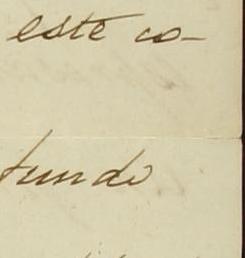 este co-
tundo